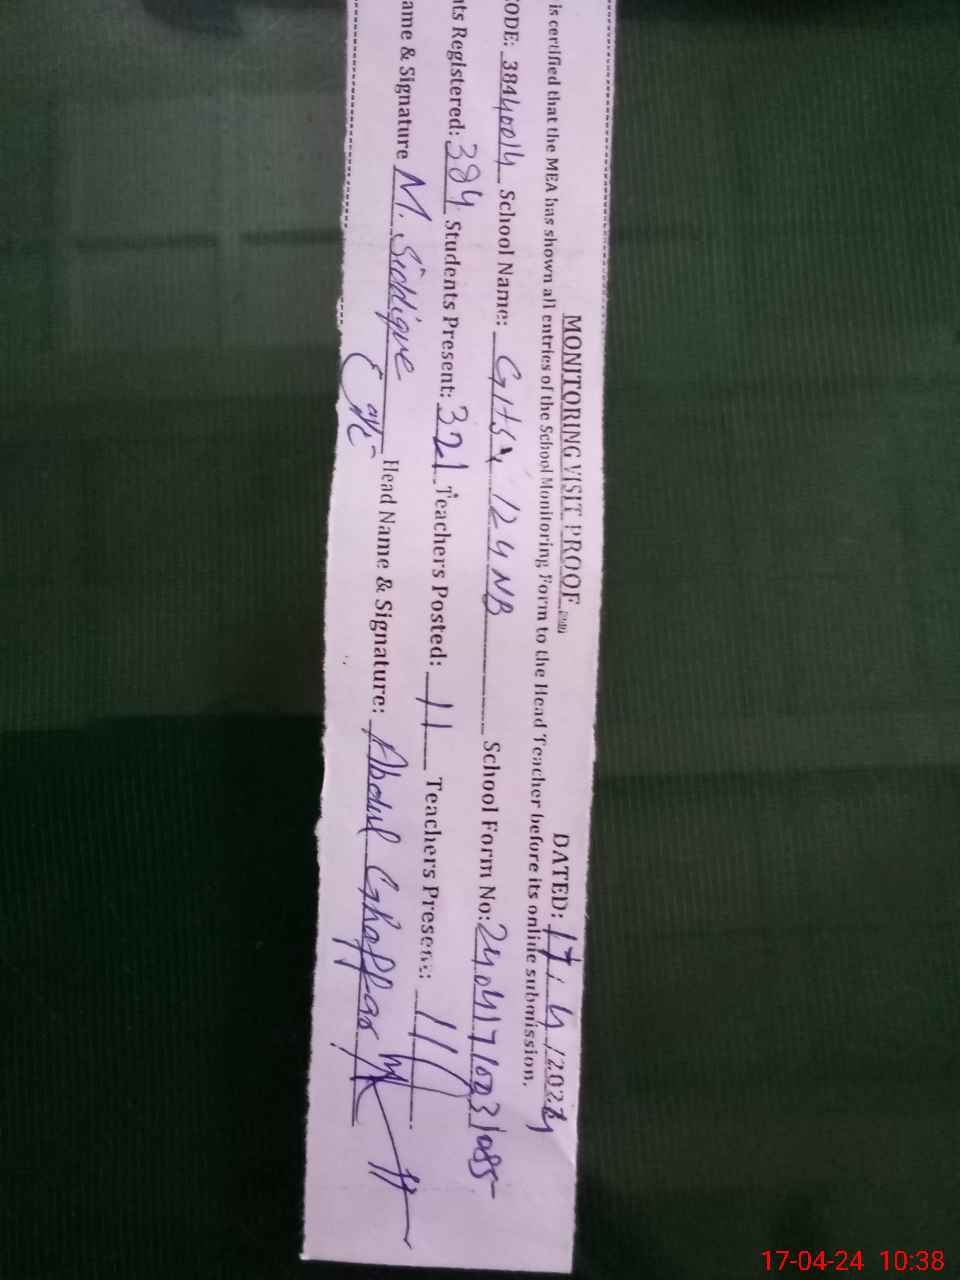 MONITORING VISIT PROOF
DATED: 17/4/2024
is certified that the MEA has shown all entries of the School Monitoring Form to the Head Teacher before its online submission.
CODE: 38440014 School Name: GHS 124 NB School Form No: 24041710031085
nts Registered: 384 Students Present: 321 Teachers Posted: 11 Teachers Present: 11
ame & Signature M. Siddique Head Name & Signature: Abdul Ghaffar
17-04-24 10:38